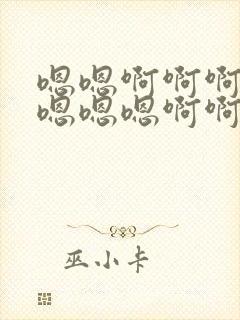 嗯嗯啊啊啊
嗯嗯嗯啊啊
巫小卡